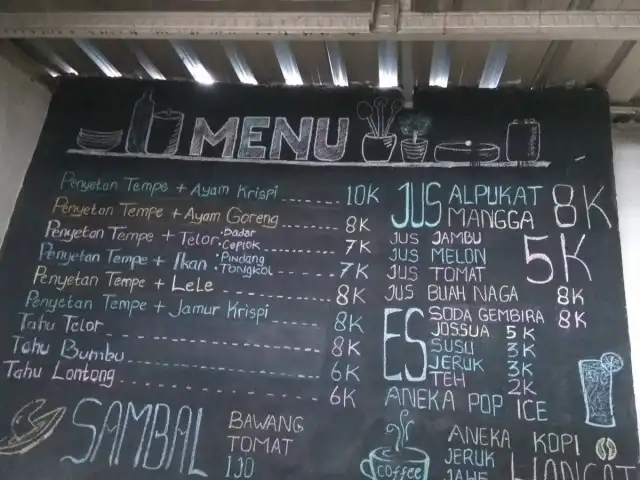 MENU
Penyetan Tempe + Ayam Krispi ....... 10K
Penyetan Tempe + Ayam Goreng ........ 8K
Penyetan Tempe + Telor • Dadar • Ceplok ........ 7K
Penyetan Tempe + Ikan • Pindang • Tongkol ........ 7K
Penyetan Tempe + Lele ........ 8K
Penyetan Tempe + Jamur Krispi ........ 8K
Tahu Telor ........ 8K
Tahu Bumbu ........ 6K
Tahu Lontong ........ 6K
SAMBAL
BAWANG
TOMAT
IJO
JUS ALPUKAT
MANGGA 8K
JUS JAMBU
JUS MELON
JUS TOMAT 5K
JUS BUAH NAGA 8K
ES SODA GEMBIRA 8K
JOSSUA 5K
SUSU 3K
JERUK 3K
TEH 2K
ANEKA POP ICE
coffee
ANEKA KOPI
JERUK
JAHE
HANGAT